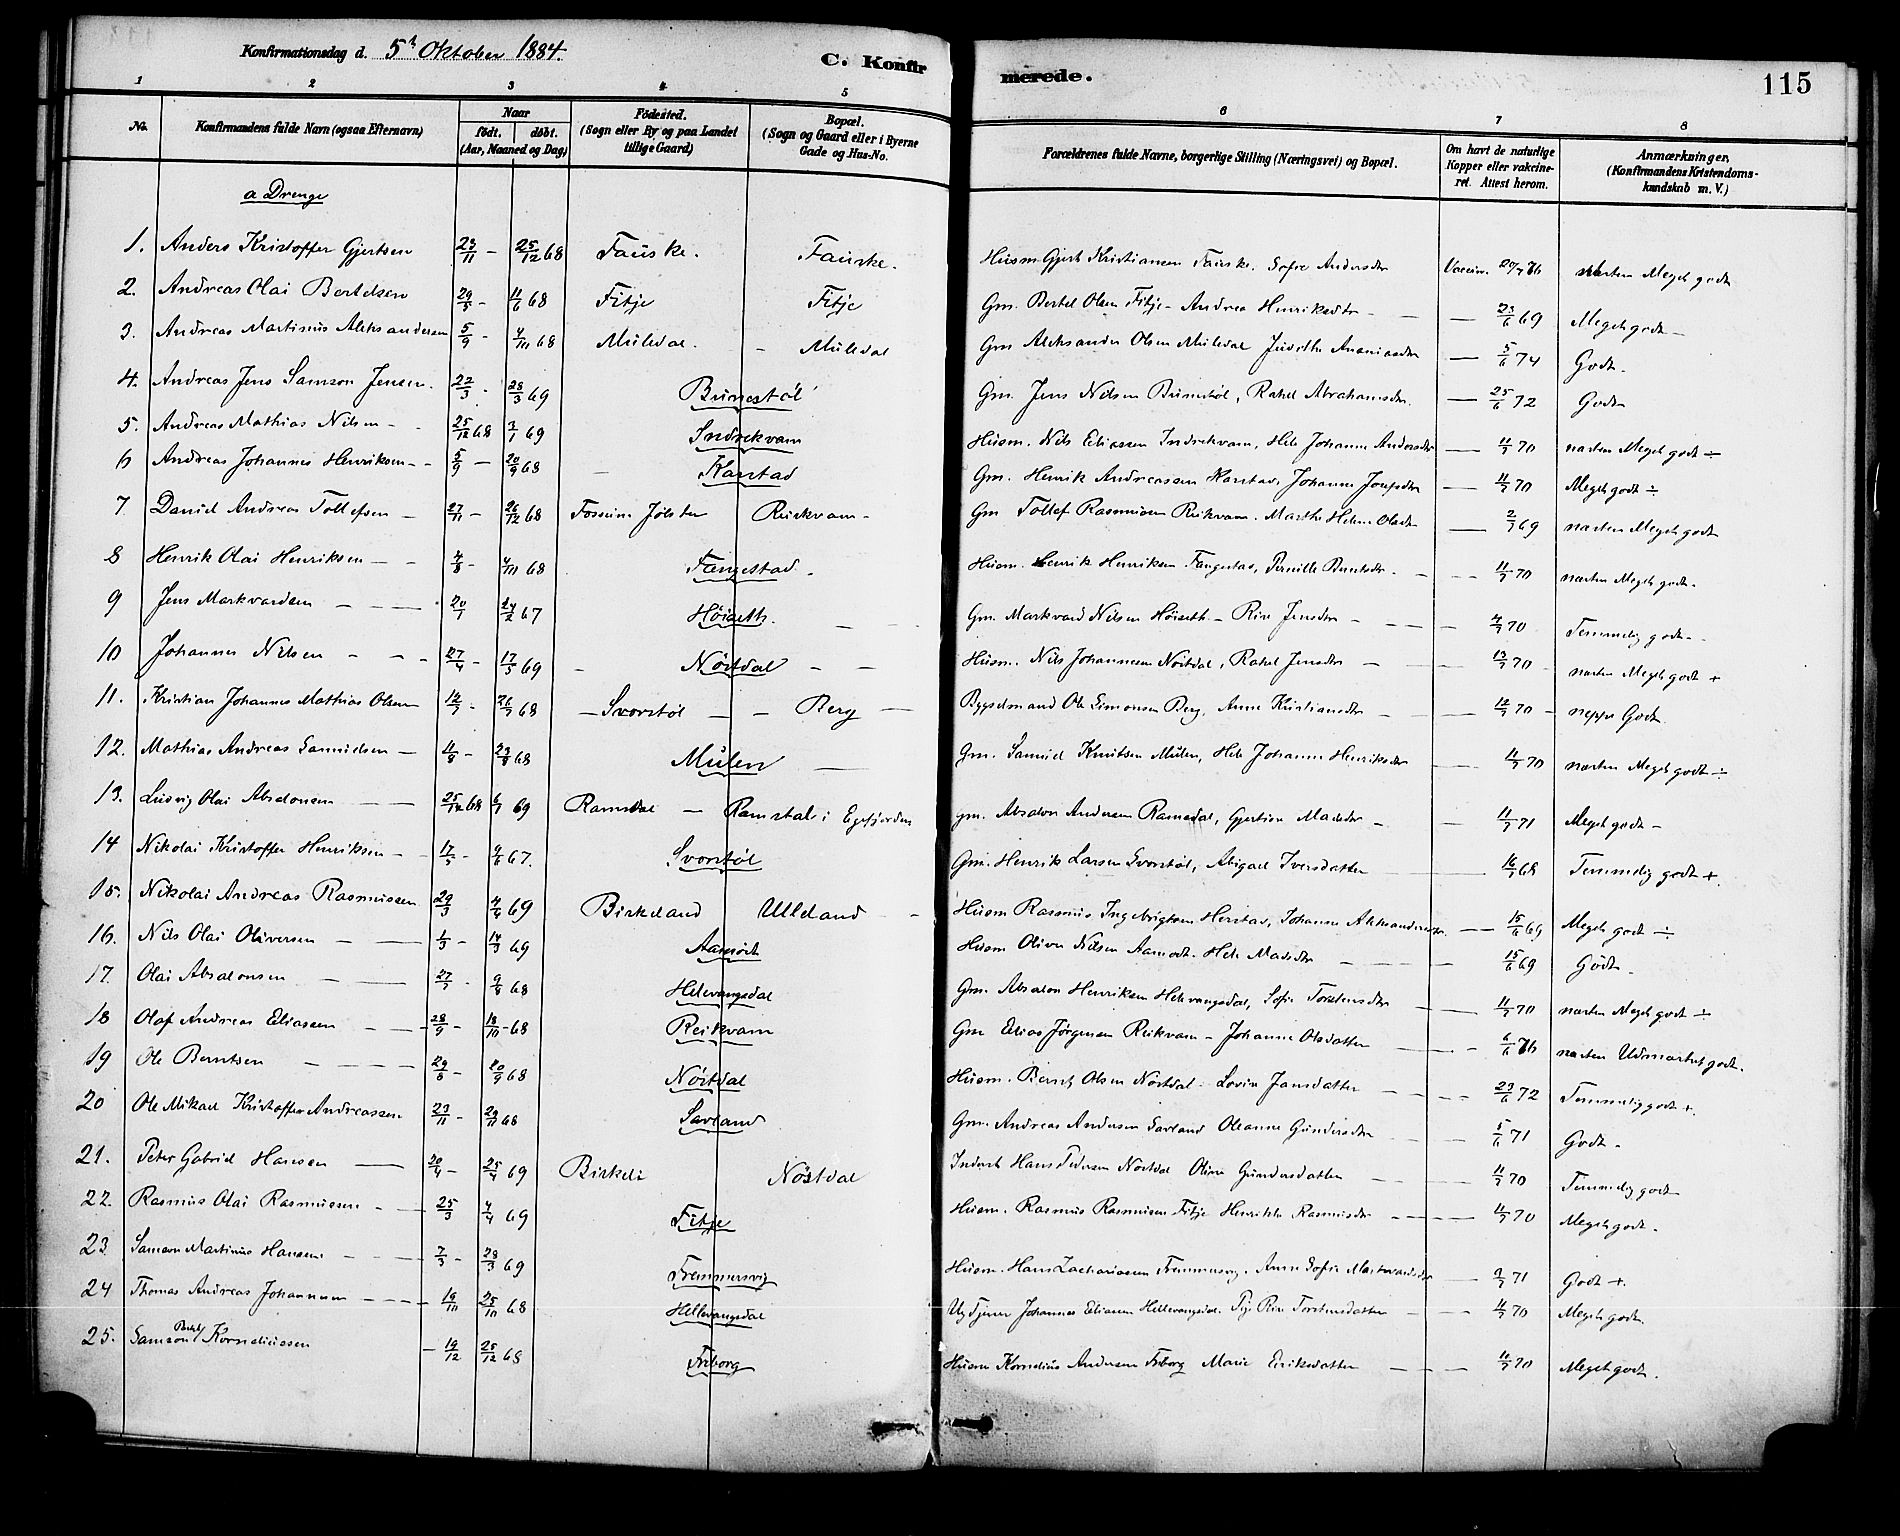 Konfirmationsdag d. 5t Oktober 1884.
C. Konfirmerede.
115
1 2 3 4 5 6 7 8
No. Konfirmandens fulde Navn (ogsaa Efternavn) Naar født. døbt. (Aar, Maaned og Dag) Fødested. (Sogn eller By og paa Landet tillige Gaard) Bopæl. (Sogn og Gaard eller i Byerne Gade og Hus-No. Forældrenes fulde Navne, borgerlige Stilling (Næringsvei) og Bopæl. Om havt de naturlige Kopper eller vakcineret. Attest herom. Anmærkninger, (Konfirmandens Kristendomskundskab m. V.)
a Drenge
1. Anders Kristoffer Gjertsen 23/11 — 25/12 68 Fauske. Fauske. Husm Gjert Kristiansen Fauske. Sofie Andersdtr Vaccin. 20/7 76 næsten Meget godt
2. Andreas Olai Bertelsen 29/5 - 11/6 68 Fitje Fitje Gm. Bertel Olsen Fitje - Andrea Henriksdtr — 23/6 69 Meget godt —
3. Andreas Martinus Aleksandersen 5/9 - 4/10 68 Muledal - Muledal Gm Aleksander Olsen Muledal Judithe Ananiasdtr — 5/6 74 Godt.
4. Andreas Jens Samson Jensen. 22/3 - 28/3 69 Bunestøl Gm. Jens Nilsen Bunestøl, Rahel Abrahamsdtr. — 25/6 72 Godt
5. Andreas Mathias Nilsen - - 25/12 68 3/1 69 Indrekvam Husm. Nils Eliassen Indrekvam, Hele Johanne Andersdtr — 11/7 70 næsten Meget godt ÷
6 Andreas Johannes Henriksen - - 5/9 — 20/9 68 — Karstad Gm. Henrik Andreassen Karstad, Johanne Josefsdtr — 11/7 70 Meget godt ÷
7. Daniel Andreas Tollefsen — 27/11 — 26/12 68 Jølster Reikvam - Gm Tollef Rasmusen Reikvam. Marthe Helene Olsdtr — 2/7 69 næsten Meget godt
8 Henrik Olai Henriksen — - 4/8 - 4/10 68 Fangestad. - Husm. Henrik Henriksen Fangestad, Pernille Berntsdtr. - - 11/7 70 næsten Meget godt.
9 Jens Markvardsen — - — 20/1 24/2 67 Høiseth. — Gm. Markvard Nilsen Høiseth — Rise Jensdtr - 4/7 70 Temmelig godt - -
10 Johannes Nilsen - - - 27/4 - 17/5 69 - Nøstdal — - Husm. Nils Johannesen Nøstdal, Rahel Jensdtr — 13/7 70 - næsten Meget godt +
11. Kristian Johannes Mathias Olsen 12/7 - 26/7 68 — Svorstøl — - Berg — Bygselmand Ole Simonsen Berg, Anne Kristiansdtr - — 12/7 70 - neppe Godt
12. Mathias Andreas Samuelsen — 11/8 - 23/8 68 Mulen — Gm. Samuel Knutsen Mulen, Hele Johanne Henriksdtr — 11/7 70 næsten Meget godt ÷
13. Ludvig Olai Absalonsen — - — 25/12 68 6/1 69 Ramsdal — Ramsdal i Egefjorden gm. Absalon Andersen Ramsdal, Gjertine Madsdtr - — 11/7 71 Meget godt —
14 Nikolai Kristoffer Henriksen — - 17/3 - 9/6 67. Svorstøl Gm. Henrik Larsen Svorstøl, Abigael Iversdatter — 16/7 68 Temmelig godt +.
15. Nikolai Andreas Rasmussen 29/3 4/4 69 Birkeland Ulleland - Husm Rasmus Ingebrigtsen Herstad, Johanne Aleksandersdtr. — 15/6 69 Meget godt ÷
16. Nils Olai Oliversen — - — 1/3 - 14/3 69 Aamodt Husm Oliver Nilsen Aamodt. Hele Madsdtr — - — 15/6 69 Godt.
17. Olai Absalonsen — - — 27/7 - 9/8 68 Hellevangsdal Gm. Absalon Henriksen Hellevangsdal, Sofie Torstensdtr — 11/7 70 næsten Meget godt ÷
18 Olaf Andreas Eliassen — - — 28/9 - 18/10 - 68 Reikvam Gm Elias Jørgensen Reikvam — Johanne Olsdatter — - 6/6 76 næsten Udmærket godt.
19 Ole Berntsen — - — 29/8 - 20/9 68 Nøstdal Husm. Bernt Olsen Nøstdal. Lovise Jansdatter — - — 23/6 72 Temmelig godt +.
20 Ole Mikael Kristoffer Andreassen 23/11 - 29/11 68 Savland Gm. Andreas Andersen Savland Oleanne Gundersdtr - 5/6 71 Godt -
21. Peter Gabriel Hansen — 20/4 - 25/4 69 Birkeli Nøstdal Inderst Hans Pedersen Nøstdal Oline Gundersdatter — 11/7 70 Temmelig godt
22. Rasmus Olai Rasmussen - — 25/3 4/4 69 Fitje Husm. Rasmus Rasmusen Fitje Henrikke Rasmusdtr - — 11/7 70 Meget godt.
23. Samson Martinus Hansen - — 7/3 - 28/3 69 Fremmersvig Husm. Hans Zachariassen Fremmersvig. Anne Sofie Markvardsdtr — 9/7 71 Godt +.
24 Thomas Andreas Johannesen - — 19/10 25/10 68 Hellevangsdal Ug Tjener Johannes Eliassen Hellevangsdal. Pig Rise Torstensdatter - 11/7 70 Meget godt.
25. Samson Bertel Korneliussen — 19/12 25/12 68 Frøborg Husm Kornelius Andersen Frøborg Marie Eriksdatter — 11/7 70 Meget godt.